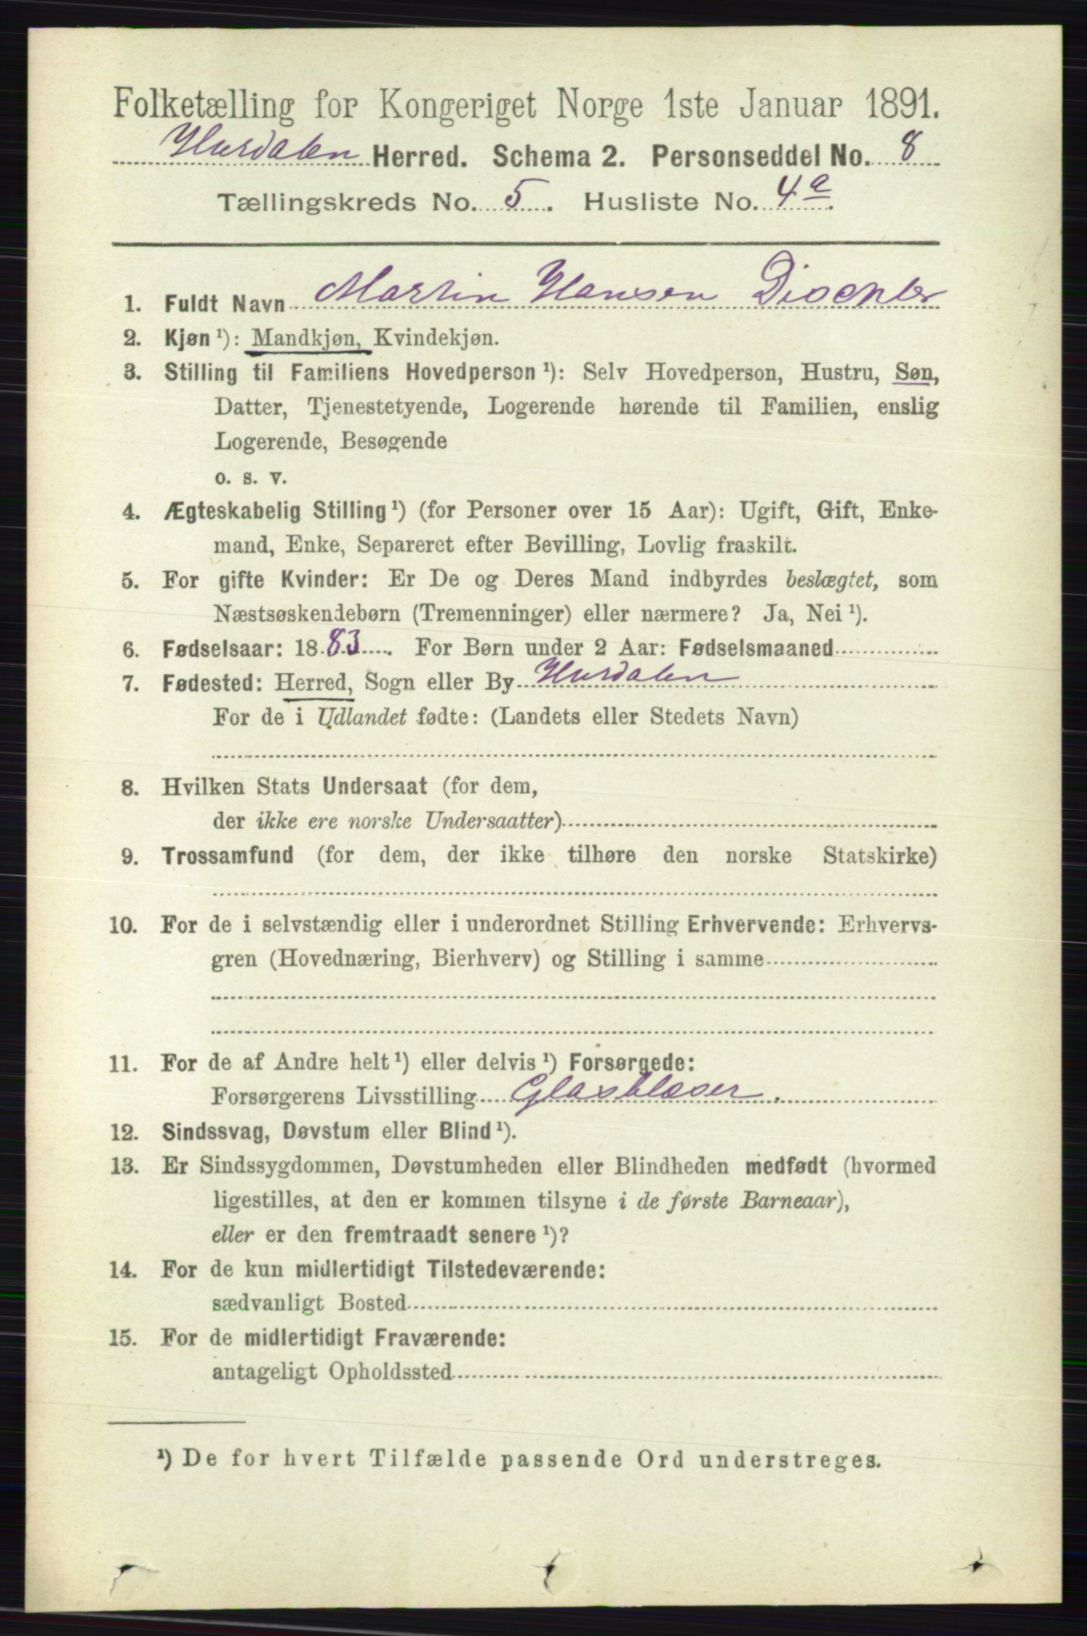 Folketælling for Kongeriget Norge 1ste Januar 1891.
Hurdalen Herred. Schema 2. Personseddel No. 8
Tællingskreds No. 5. Husliste No. 4a.
1. Fuldt Navn Martin Hansen Dischler
2. Kjøn ¹): Mandkjøn, Kvindekjøn.
3. Stilling til Familiens Hovedperson ¹): Selv Hovedperson, Hustru, Søn,
Datter, Tjenestetyende, Logerende hørende til Familien, enslig
Logerende, Besøgende
o. s. v.
4. Ægteskabelig Stilling ¹) (for Personer over 15 Aar): Ugift, Gift, Enke-
mand, Enke, Separeret efter Bevilling, Lovlig fraskilt.
5. For gifte Kvinder: Er De og Deres Mand indbyrdes beslægtet, som
Næstsøskendebørn (Tremenninger) eller nærmere? Ja, Nei ¹).
6. Fødselsaar: 1883. For Børn under 2 Aar: Fødselsmaaned
7. Fødested: Herred, Sogn eller By Hurdalen
For de i Udlandet fødte: (Landets eller Stedets Navn)
8. Hvilken Stats Undersaat (for dem,
der ikke ere norske Undersaatter)
9. Trossamfund (for dem, der ikke tilhøre den norske Statskirke)
10. For de i selvstændig eller i underordnet Stilling Erhvervende: Erhvervs-
gren (Hovednæring, Bierhverv) og Stilling i samme
11. For de af Andre helt ¹) eller delvis ¹) Forsørgede:
Forsørgerens Livsstilling Glasblæser.
12. Sindssvag, Døvstum eller Blind ¹).
13. Er Sindssygdommen, Døvstumheden eller Blindheden medfødt (hvormed
ligestilles, at den er kommen tilsyne i de første Barneaar),
eller er den fremtraadt senere ¹)?
14. For de kun midlertidigt Tilstedeværende:
sædvanligt Bosted
15. For de midlertidigt Fraværende:
antageligt Opholdssted
¹) De for hvert Tilfælde passende Ord understreges.